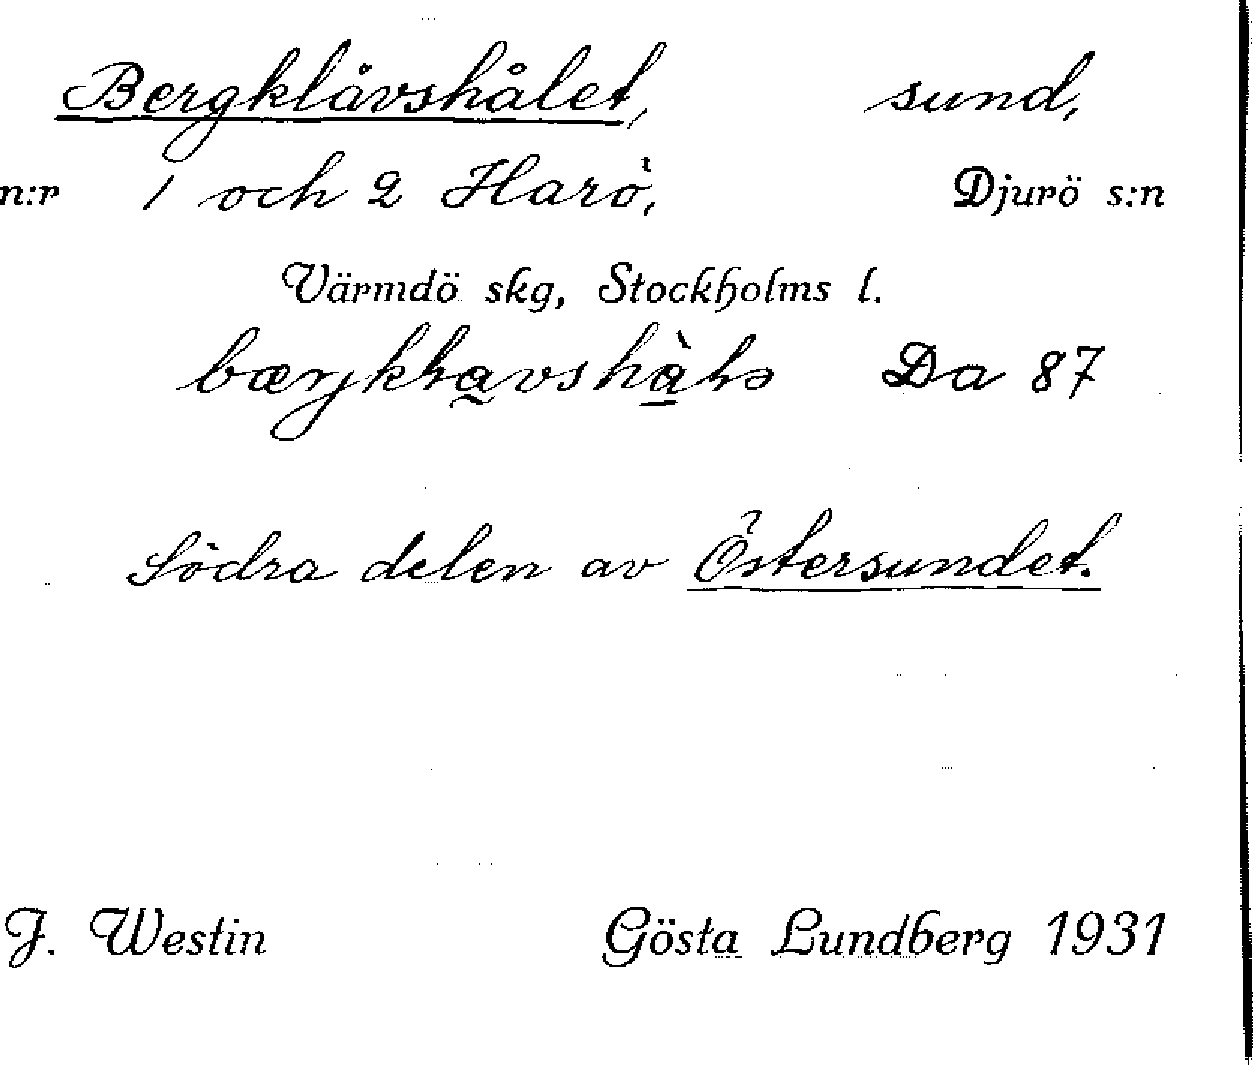 Bergklåvshålet, sund,
n:r 1 och 2 Harö, Djurö s:n
Värmdö skg, Stockholms l.
Da 87
Södra delen av Östersundet.
J. Westin Gösta Lundberg 1931